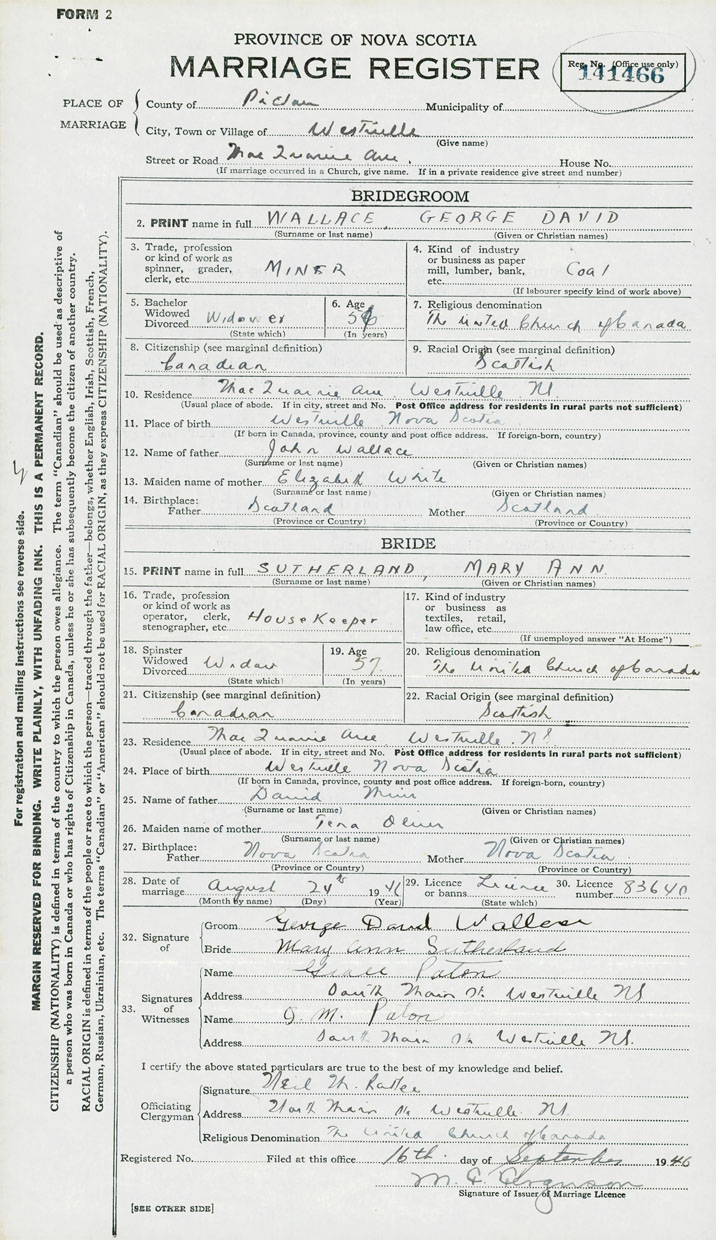 FORM 2
PROVINCE OF NOVA SCOTIA
MARRIAGE REGISTER
Reg. No. (Office use only)
141466
PLACE OF MARRIAGE
County of Pictou Municipality of
City, Town or Village of Westville
(Give name)
Street or Road Mac Quarrie Ave. House No.
(If marriage occurred in a Church, give name. If in a private residence give street and number)
BRIDEGROOM
2. PRINT name in full WALLACE, GEORGE DAVID
(Surname or last name) (Given or Christian names)
3. Trade, profession or kind of work as spinner, grader, clerk, etc. MINER
4. Kind of industry or business as paper mill, lumber, bank, etc. Coal
(If labourer specify kind of work above)
5. Bachelor Widowed Divorced Widower
(State which)
6. Age
(In years)
7. Religious denomination
The United Church of Canada
8. Citizenship (see marginal definition)
Canadian
9. Racial Origin (see marginal definition)
Scottish
10. Residence Mac Quarrie Ave Westville NS.
(Usual place of abode. If in city, street and No. Post Office address for residents in rural parts not sufficient)
11. Place of birth Westville Nova Scotia
(If born in Canada, province, county and post office address. If foreign-born, country)
12. Name of father John Wallace
(Surname or last name) (Given or Christian names)
13. Maiden name of mother Elizabeth White
(Surname or last name) (Given or Christian names)
14. Birthplace: Father Scotland Mother Scotland
(Province or Country) (Province or Country)
BRIDE
15. PRINT name in full SUTHERLAND, MARY ANN
(Surname or last name) (Given or Christian names)
16. Trade, profession or kind of work as operator, clerk, stenographer, etc. HouseKeeper
17. Kind of industry or business as textiles, retail, law office, etc.
(If unemployed answer "At Home")
18. Spinster Widowed Divorced Widow
(State which)
19. Age 57
(In years)
20. Religious denomination
The United Church of Canada
21. Citizenship (see marginal definition)
Canadian
22. Racial Origin (see marginal definition)
Scottish
23. Residence Mac Quarrie Ave Westville. NS
(Usual place of abode. If in city, street and No. Post Office address for residents in rural parts not sufficient)
24. Place of birth Westville Nova Scotia
(If born in Canada, province, county and post office address. If foreign-born, country)
25. Name of father David Muir
(Surname or last name) (Given or Christian names)
26. Maiden name of mother Tena Oliver
(Surname or last name) (Given or Christian names)
27. Birthplace: Father Nova Scotia Mother Nova Scotia
(Province or Country) (Province or Country)
28. Date of marriage August 24th 1946
(Month by name) (Day) (Year)
29. Licence or banns Licence
(State which)
30. Licence number 83640
32. Signature of
Groom George David Wallace
Bride Mary Ann Sutherland
33. Signatures of Witnesses
Name Grace Paton
Address South Main St. Westville NS
Name J. M. Paton
Address South Main St Westville NS.
I certify the above stated particulars are true to the best of my knowledge and belief.
Officiating Clergyman
Signature Neil M.
Address North Main St Westville NS.
Religious Denomination The United Church of Canada
Registered No. Filed at this office 16th day of September 1946
M. C. Ferguson
Signature of Issuer of Marriage Licence
[SEE OTHER SIDE]
For registration and mailing instructions see reverse side.
MARGIN RESERVED FOR BINDING. WRITE PLAINLY, WITH UNFADING INK. THIS IS A PERMANENT RECORD.
CITIZENSHIP (NATIONALITY) is defined in terms of the country to which the person owes allegiance. The term "Canadian" should be used as descriptive of
a person who was born in Canada or who has rights of Citizenship in Canada, unless he or she has subsequently become the citizen of another country.
RACIAL ORIGIN is defined in terms of the people or race to which the person—traced through the father—belongs, whether English, Irish, Scottish, French,
German, Russian, Ukrainian, etc. The terms "Canadian" or "American" should not be used for RACIAL ORIGIN, as they express CITIZENSHIP (NATIONALITY).